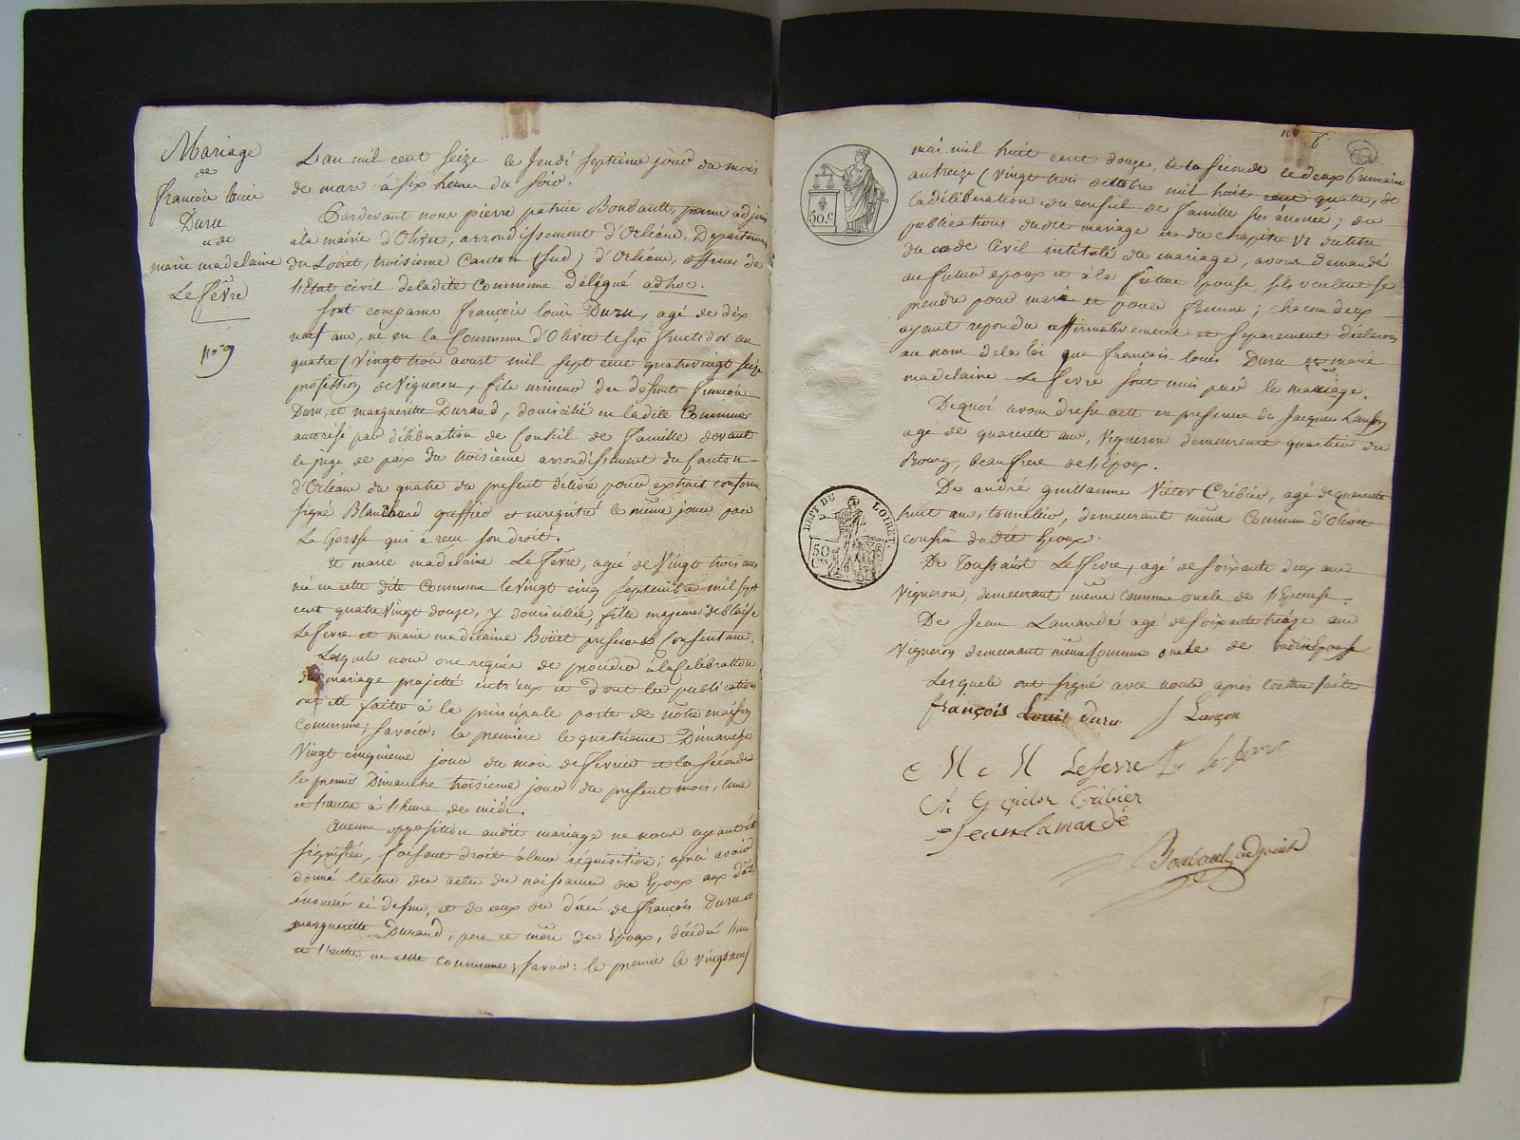 Mariage
de
françois louis
Duru
et de
marie madelaine
Le fèvre
n.º 9
L'an mil cent seize le Jeudi septième jour du mois
de mars à six heures du soir.
Pardevant nous pierre patrice Boudault, adjoint
à la mairie d'Olivet, arrondissement d'Orléans, Departement
du Loiret, troisieme Canton (sud) d'Orléans, officier de
l'état civil deladite Commune délégué ad hoc.
sont comparus françois louis Duru, agé de dix
neuf ans, né en la Commune d'Olivet le six fructidor an
quatre (vingt trois aoust mil sept cent quatrevingt seize
profession de Vigneron, fils mineur des défunts françois
Duru, et margueritte Durand, domicilié en ladite Commune
autorisé par délibération de Conseil de famille devant
le juge de paix du troisieme arrondissement du Canton
d'Orléans du quatre du present délivré pour extrait conforme
signé Blanchard greffier et enregistré le même jour par
La Gorsse qui a reçu son droit.
Et marie madelaine Le févre, agée de Vingt trois ans
née en cette dite Commune le vingt cinq septembre mil sept
cent quatre Vingt douze, y domiciliée, fille majeure de blaise
Lefevre et marie madelaine Boüet presens et Consentans.
Lesquels nous ont requis de proceder à la Célébration
du mariage projetté entr'eux et dont les publications
ont été faites à la principale porte de nôtre maison
Commune; savoir: la première le quatrieme Dimanche
Vingt cinquieme jour du mois de fevrier et la seconde
le premier Dimanche troisieme jour du present mois, l'une
et l'autre à l'heure de midi.
Aucune opposition audit mariage ne nous ayant été
signifiée, faisant droit à leur réquisition; après avoir
donné lecture des actes de naissance des Epoux aux dates
énoncés ci dessus, et de ceux de décès de françois Duru et
marguerite Durand, pere et mère de l'Epoux, décédés l'un
et l'autre en cette commune; savoir: le premier le vingt neuf
n.º 6
mai mil huit cent douze, et la seconde le deux Brumaire
an treize (vingt trois octobre mil huit cent quatre, de
la délibération du conseil de famille sus énoncé; des
publications dudit mariage et du chapitre VI du titre
du code Civil intitulé du mariage, avons demandé
au futur epoux et à la future epouse, s'ils veulent se
prendre pour mari et pour femme; chacun d'eux
ayant repondu affirmativement et separement déclarons
au nom de la loi que françois louis Duru et marie
madelaine Le fevre sont unis par le mariage.
De quoi avons dressé acte en presence de Jacques Lançon
agé de quarante ans, Vigneron demeurant quartier du
Bourg, beau frere de l'époux.
De andré guillaume Victor Cribier, agé de quarante
huit ans, tonnelier, demeurant même Commune d'Olivet
cousin dudit Epoux.
De Toussaint Lefevre, agé de soixante deux ans
Vigneron, demeurant même commune oncle de l'Epouse.
De Jean Lamandé agé de soixante treize ans
Vigneron demeurant même Commune oncle de
Lesquels ont signé avec nous après lecture faite
françois Louis duru J Lançon
M M Lefevre
Cribier
Jean lamandé
Boudault adjoint
50 C
DEPT DU LOIRET.
50
Cs